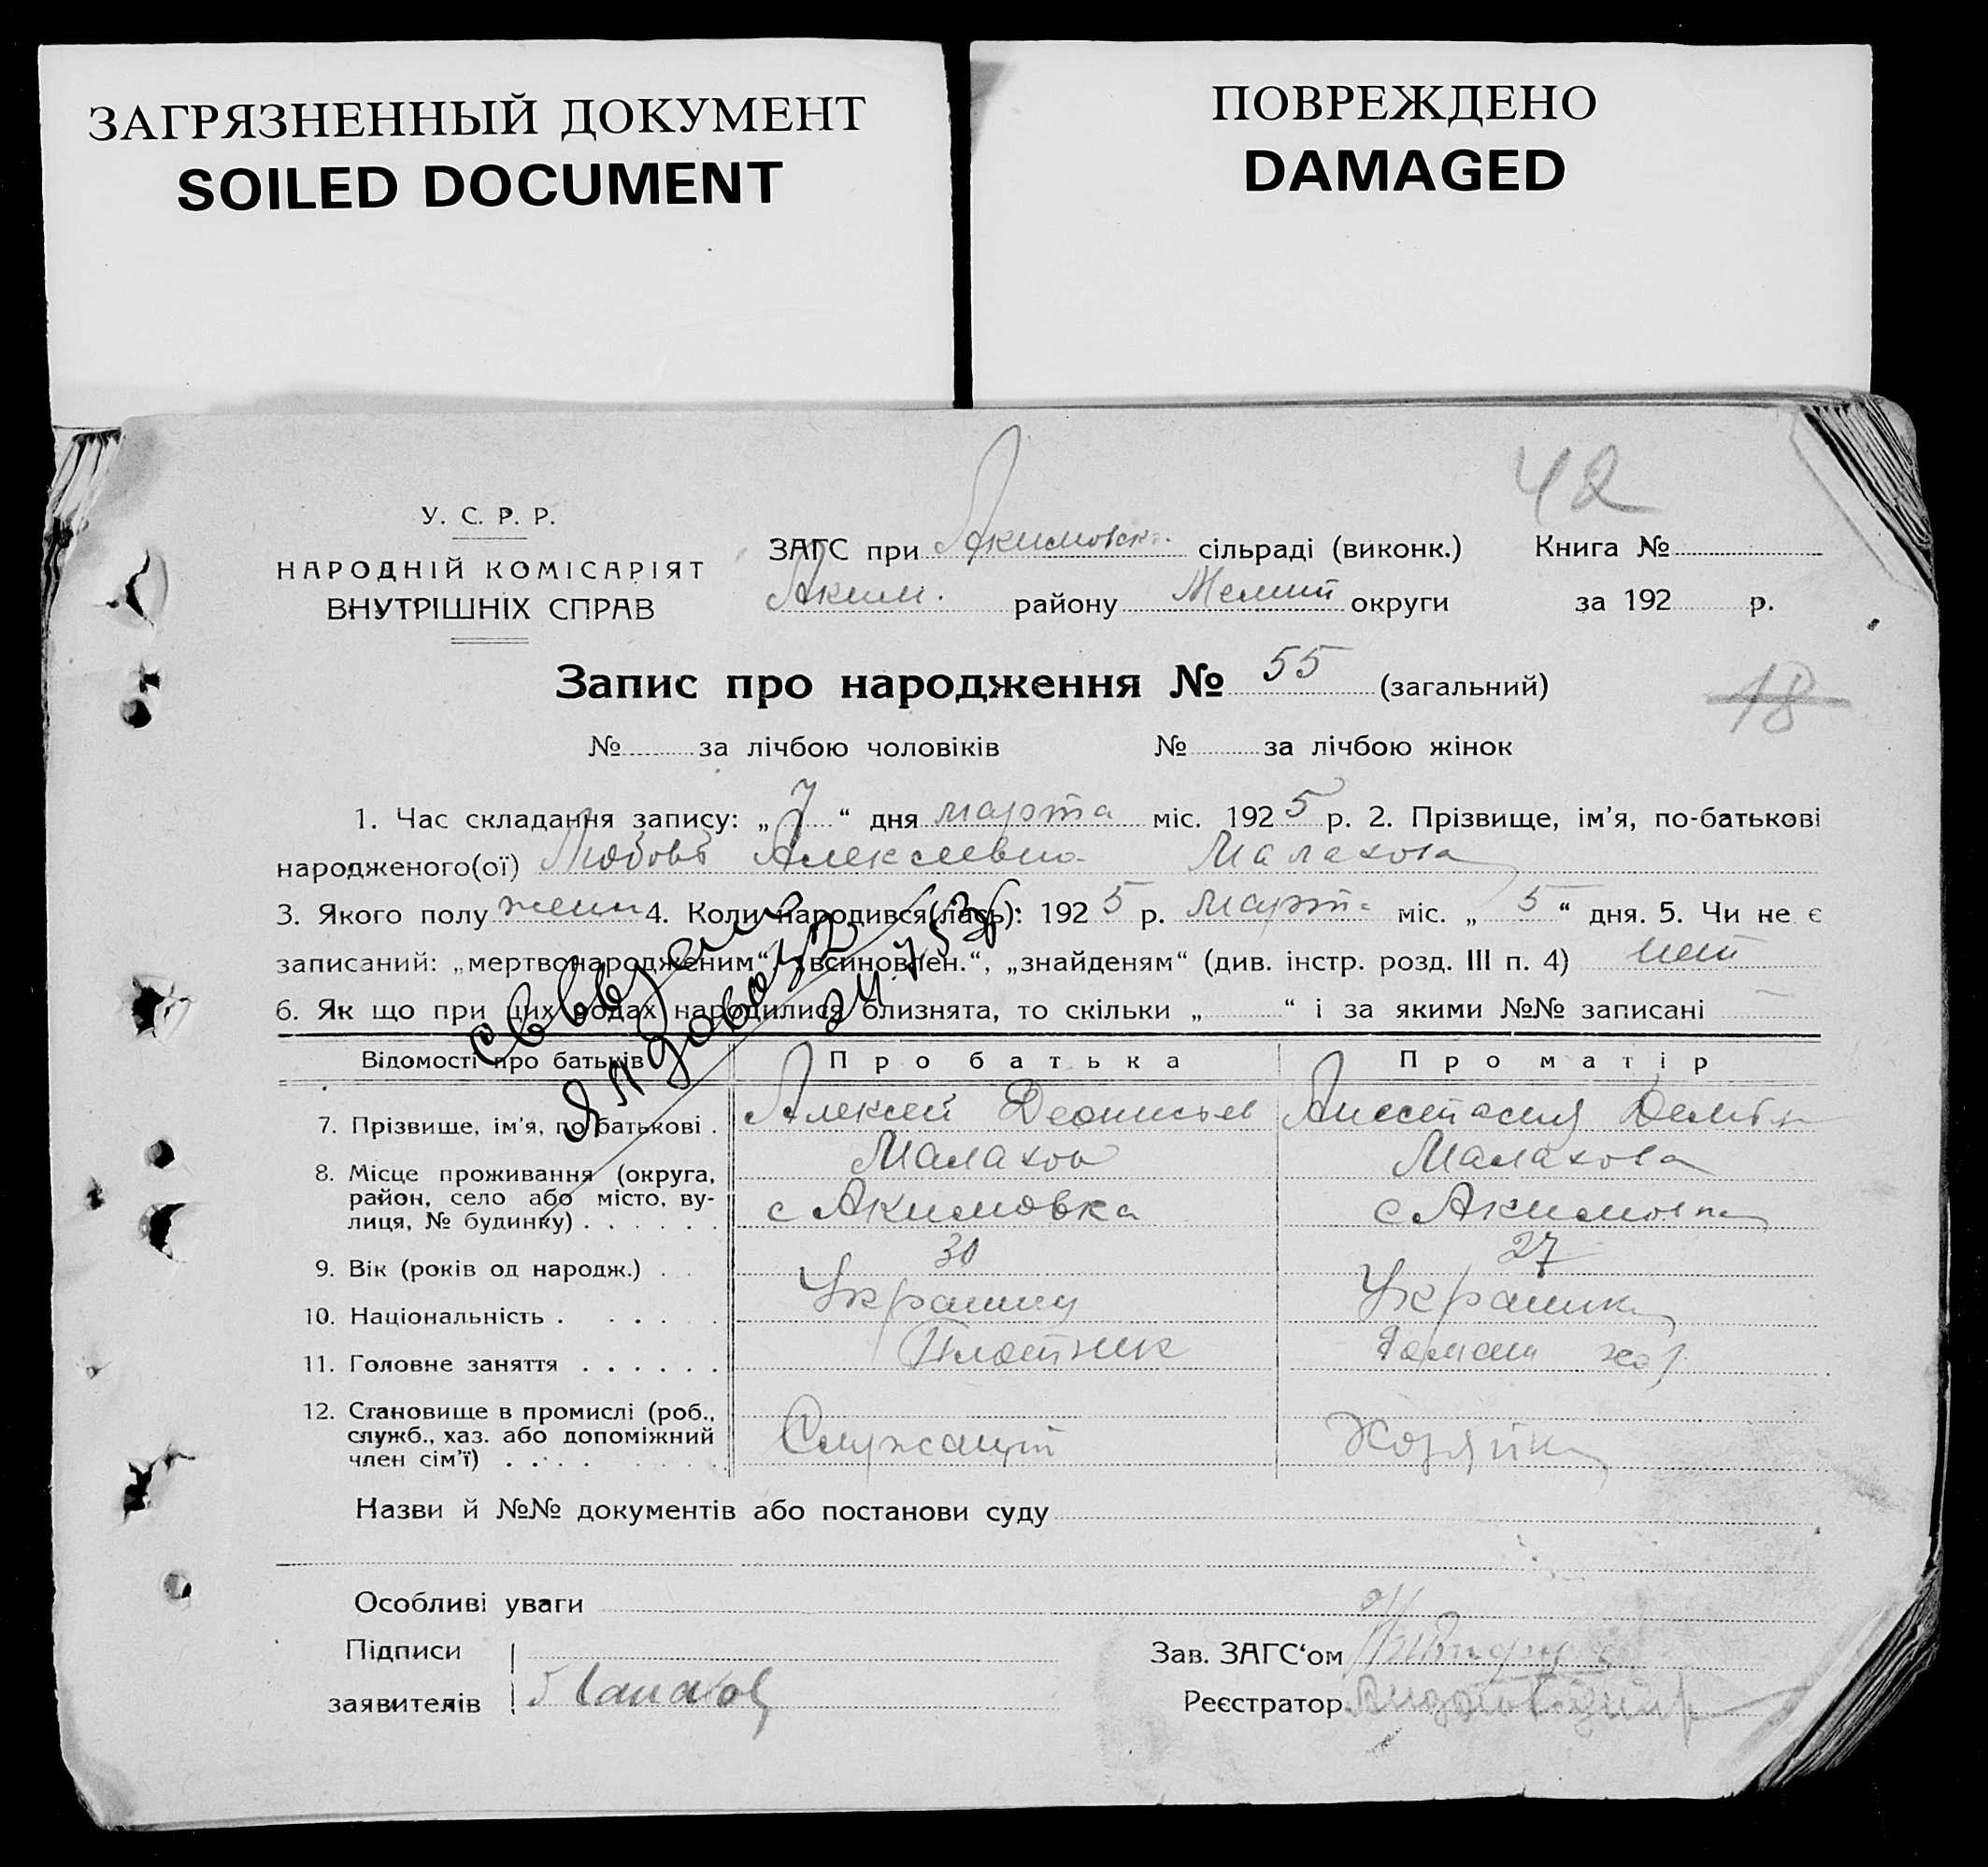 ЗАГРЯЗНЕННЫЙ ДОКУМЕНТ
SOILED DOCUMENT
ПОВРЕЖДЕНО
DAMAGED
42
У. С. Р. Р.
НАРОДНІЙ КОМІСАРІЯТ
ВНУТРІШНІХ СПРАВ
ЗАГС при Акимовск. сільраді (виконк.) Книга №
Аким. району Мелит округи за 192 р.
Запис про народження № 55 (загальний)
18
№ за лічбою чоловіків № за лічбою жінок
1. Час складання запису: „ 7 “ дня марта міс. 192 5 р. 2. Прізвище, ім'я, по-батькові
народженого(ої) Любовь Алексеевна Малахова
3. Якого полу женск 4. Коли народився(лась): 192 5 р. март міс. „ 5 “ дня. 5. Чи не є
записаний: „мертвонародженим“, „всиновлен.“, „знайденям“ (див. інстр. розд. III п. 4) нет
6. Як що при цих родах народилися близнята, то скільки „ “ і за якими №№ записані
Відомості про батьків Про батька Про матір
7. Прізвище, ім'я, по батькові . Алексей Деонисьев Анестасия Демья
Малахов Малахова
8. Місце проживання (округа,
район, село або місто, ву-
лиця, № будинку) . . . . . . с Акимовка с Акимовка
9. Вік (років од народж.) . . 30 27
10. Національність . . . . . Украинец Украинка
11. Головне заняття . . . . . . Плотник Домаш хоз
12. Становище в промислі (роб.,
служб., хаз. або допоміжний
член сім'ї) . . . . Служащий Хозяйка
Назви й №№ документів або постанови суду
Особливі уваги
Підписи
заявителів Малахов
Зав. ЗАГС‘ом
Реєстратор